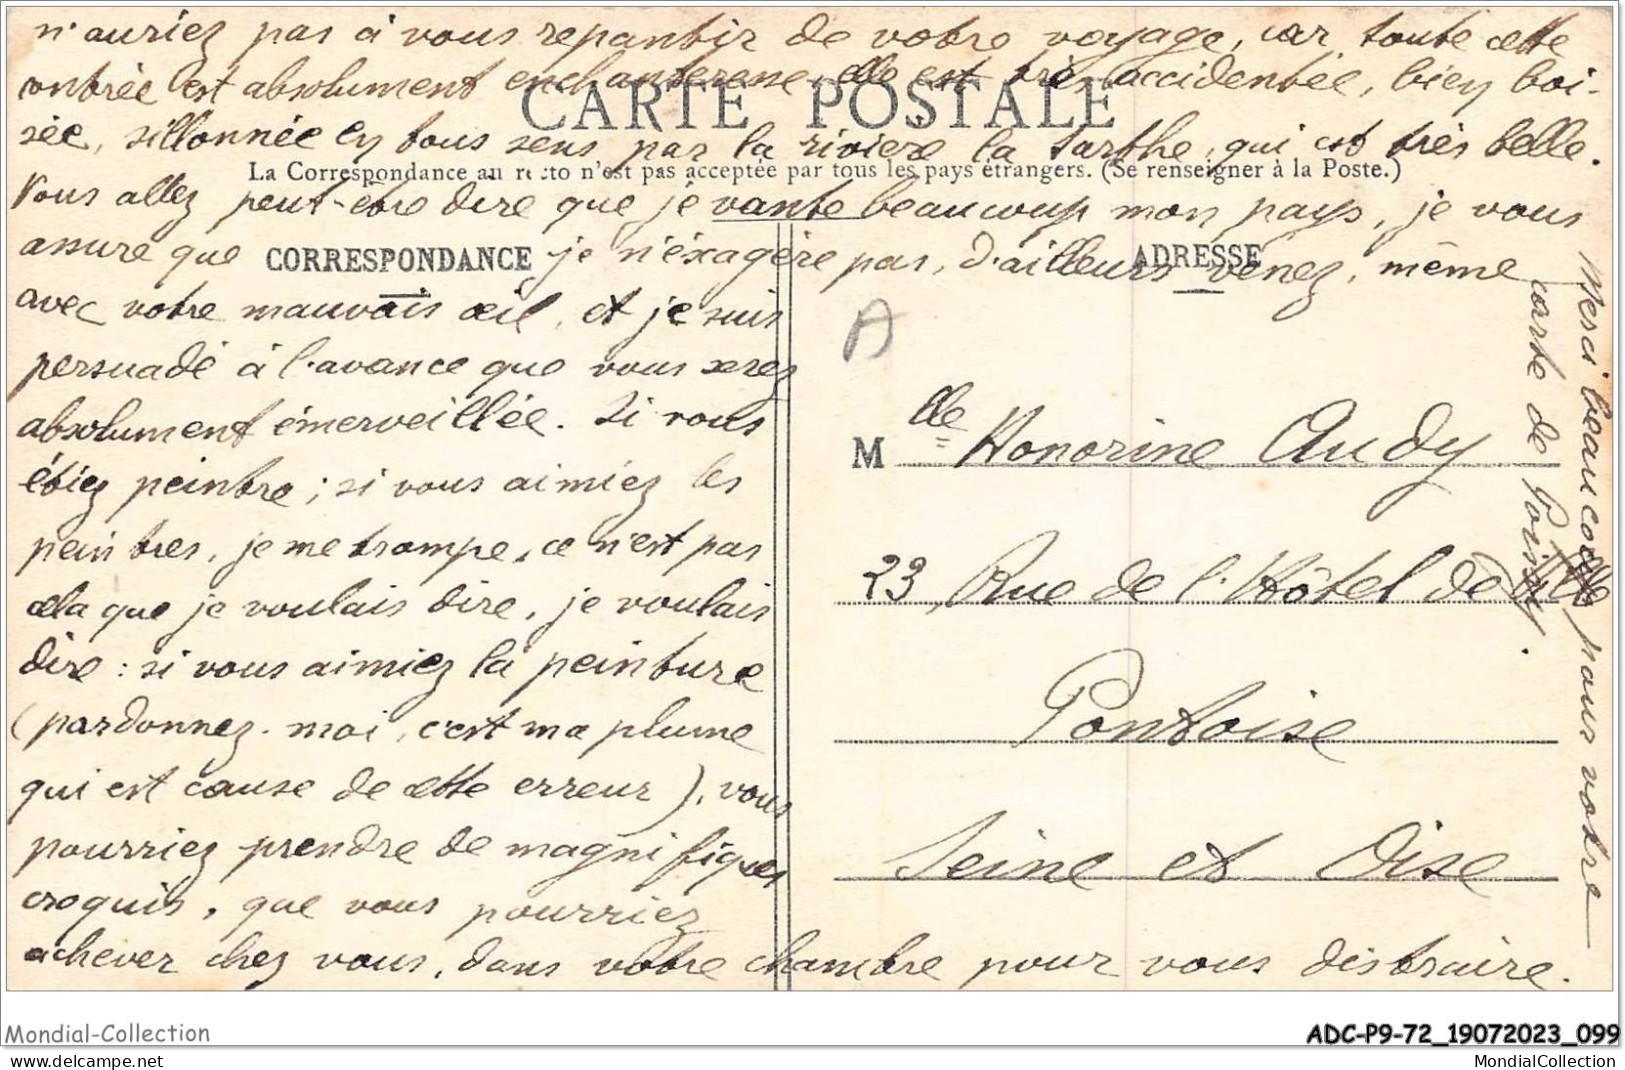 n'auriez pas à vous repentir de votre voyage, car, toute cette
contrée est absolument enchanteresse, elle est très accidentée, bien boi-
CARTE POSTALE
sée, sillonnée en tous sens par la rivière la Sarthe, qui est très belle.
La Correspondance au recto n'est pas acceptée par tous les pays étrangers. (Se renseigner à la Poste.)
Vous allez peut-être dire que je vante beaucoup mon pays, je vous
assure que je n'éxagère pas, d'ailleurs venez, même
CORRESPONDANCE
ADRESSE
avec votre mauvais œil, et je suis
persuadé à l'avance que vous serez
absolument émerveillée. Si vous
étiez peintre ; si vous aimiez les
peintres, je me trompe, ce n'est pas
cela que je voulais dire, je voulais
dire : si vous aimiez la peinture
(pardonnez-moi, c'est ma plume
qui est cause de cette erreur), vous
pourriez prendre de magnifiques
croquis, que vous pourriez
achever chez vous, dans votre chambre pour vous distraire.
A
Mdlle Honorine Audy
23, Rue de l'Hôtel de Ville
Pontoise
Seine et Oise
Merci beaucoup pour votre
carte de Poissy.
Mondial-Collection
ADC-P9-72_19072023_099
www.delcampe.net
MondialCollection